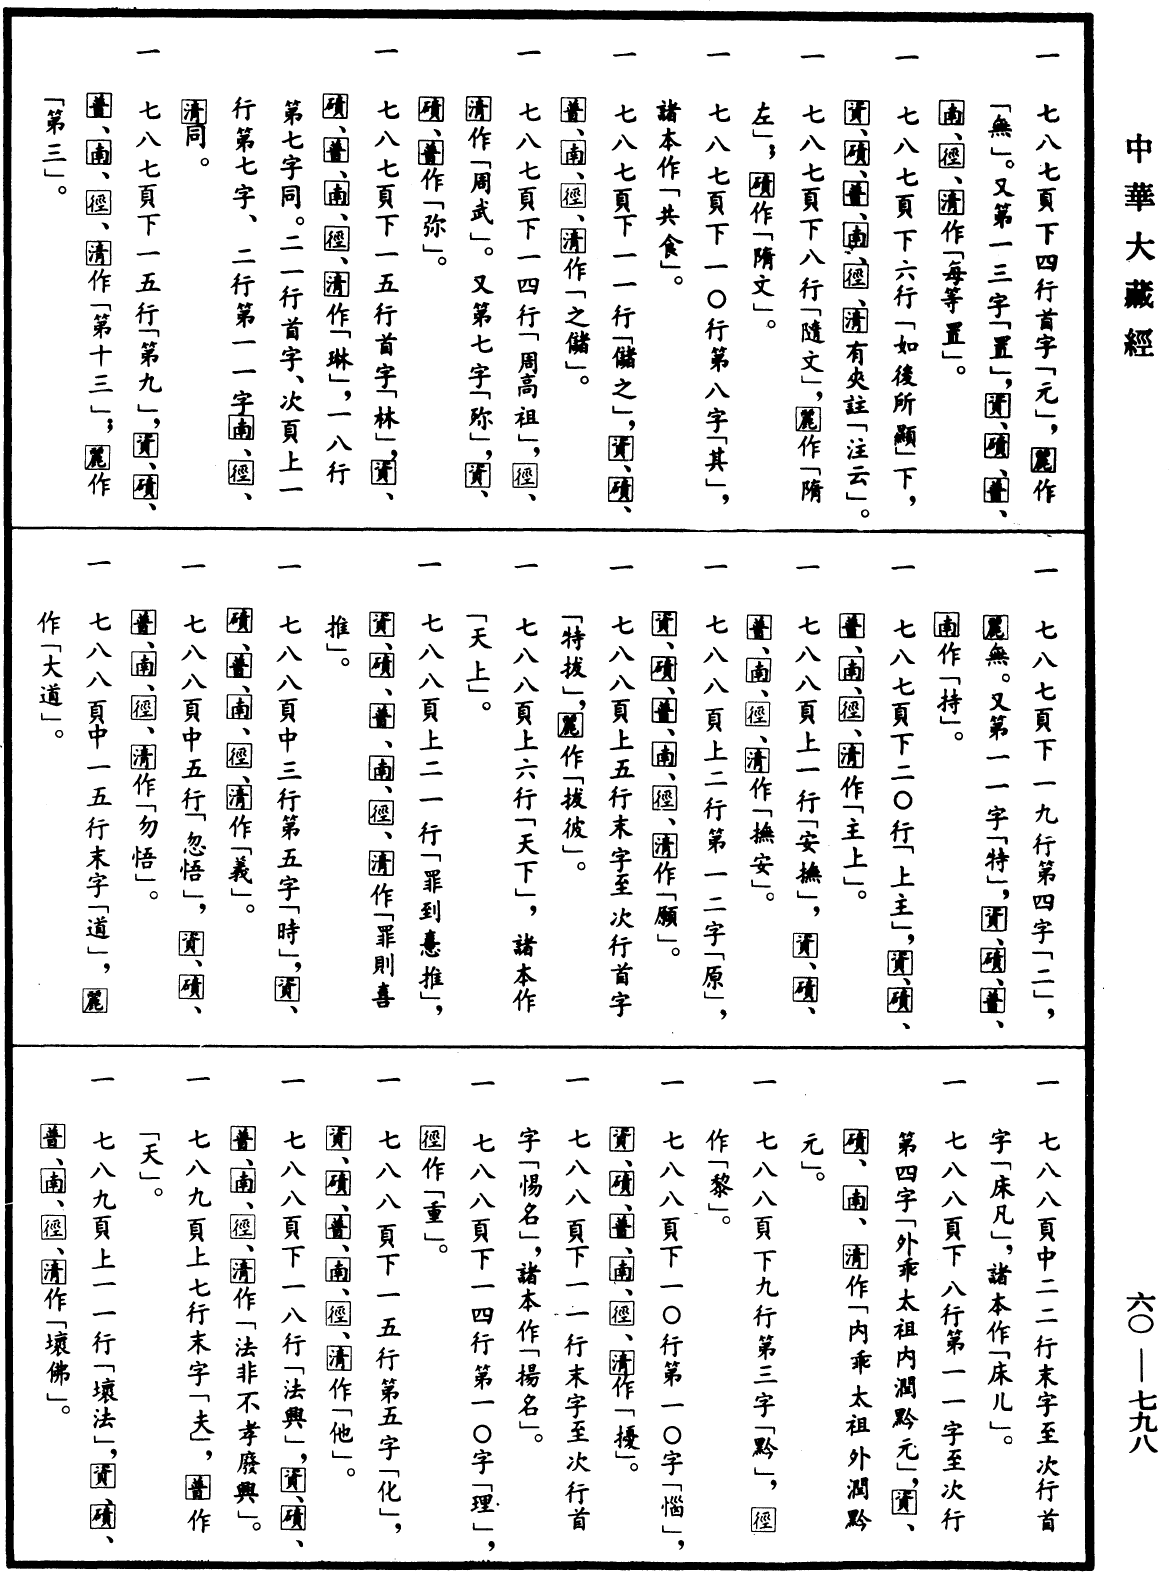 中華大藏經
一　七八七頁下四行首字「元」，麗作
「無」。又第一三字「置」，資、磧、普、
南、徑、清作「每等置」。
一　七八七頁下六行「如後所顯」下，
資、磧、普、南、徑、清有夾註「注云」。
一　七八七頁下八行「隨文」，麗作「隋
左」；磧作「隋文」。
一　七八七頁下一〇行第八字「其」，
諸本作「共食」。
一　七八七頁下一一行「儲之」，資、磧、
普、南、徑、清作「之儲」。
一　七八七頁下一四行「周高祖」，徑、
清作「周武」。又第七字「殄」，資、
磧、普作「弥」。
一　七八七頁下一五行首字「林」，資、
磧、普、南、徑、清作「琳」，一八行
第七字同。二一行首字、次頁上一
行第七字、二行第一一字南、徑、
清同。
一　七八七頁下一五行「第九」，資、磧、
普、南、徑、清作「第十三」；麗作
「第三」。
一　七八七頁下一九行第四字「二」，
麗無。又第一一字「特」，資、磧、普、
南作「持」。
一　七八七頁下二〇行「上主」，資、磧、
普、南、徑、清作「主上」。
一　七八八頁上一行「安撫」，資、磧、
普、南、徑、清作「撫安」。
一　七八八頁上二行第一二字「原」，
資、磧、普、南、徑、清作「願」。
一　七八八頁上五行末字至次行首字
「特拔」，麗作「拔彼」。
一　七八八頁上六行「天下」，諸本作
「天上」。
一　七八八頁上二一行「罪到惪推」，
資、磧、普、南、徑、清作「罪則喜
推」。
一　七八八頁中三行第五字「時」，資、
磧、普、南、徑、清作「義」。
一　七八八頁中五行「忽悟」，資、磧、
普、南、徑、清作「勿悟」。
一　七八八頁中一五行末字「道」，麗
作「大道」。
一　七八八頁中二二行末字至次行首
字「床凡」，諸本作「床儿」。
一　七八八頁下八行第一一字至次行
第四字「外乖太祖內潤黔元」，資、
磧、南、清作「內乖太祖外潤黔
元」。
一　七八八頁下九行第三字「黔」，徑
作「黎」。
一　七八八頁下一〇行第一〇字「惱」，
資、磧、普、南、徑、清作「擾」。
一　七八八頁下一一行末字至次行首
字「惕名」，諸本作「揚名」。
一　七八八頁下一四行第一〇字「理」，
徑作「重」。
一　七八八頁下一五行第五字「化」，
資、磧、普、南、徑、清作「他」。
一　七八八頁下一八行「法興」，資、磧、
普、南、徑、清作「法非不孝廢興」。
一　七八九頁上七行末字「夫」，普作
「天」。
一　七八九頁上一一行「壞法」，資、磧、
普、南、徑、清作「壞佛」。
六〇——七九八